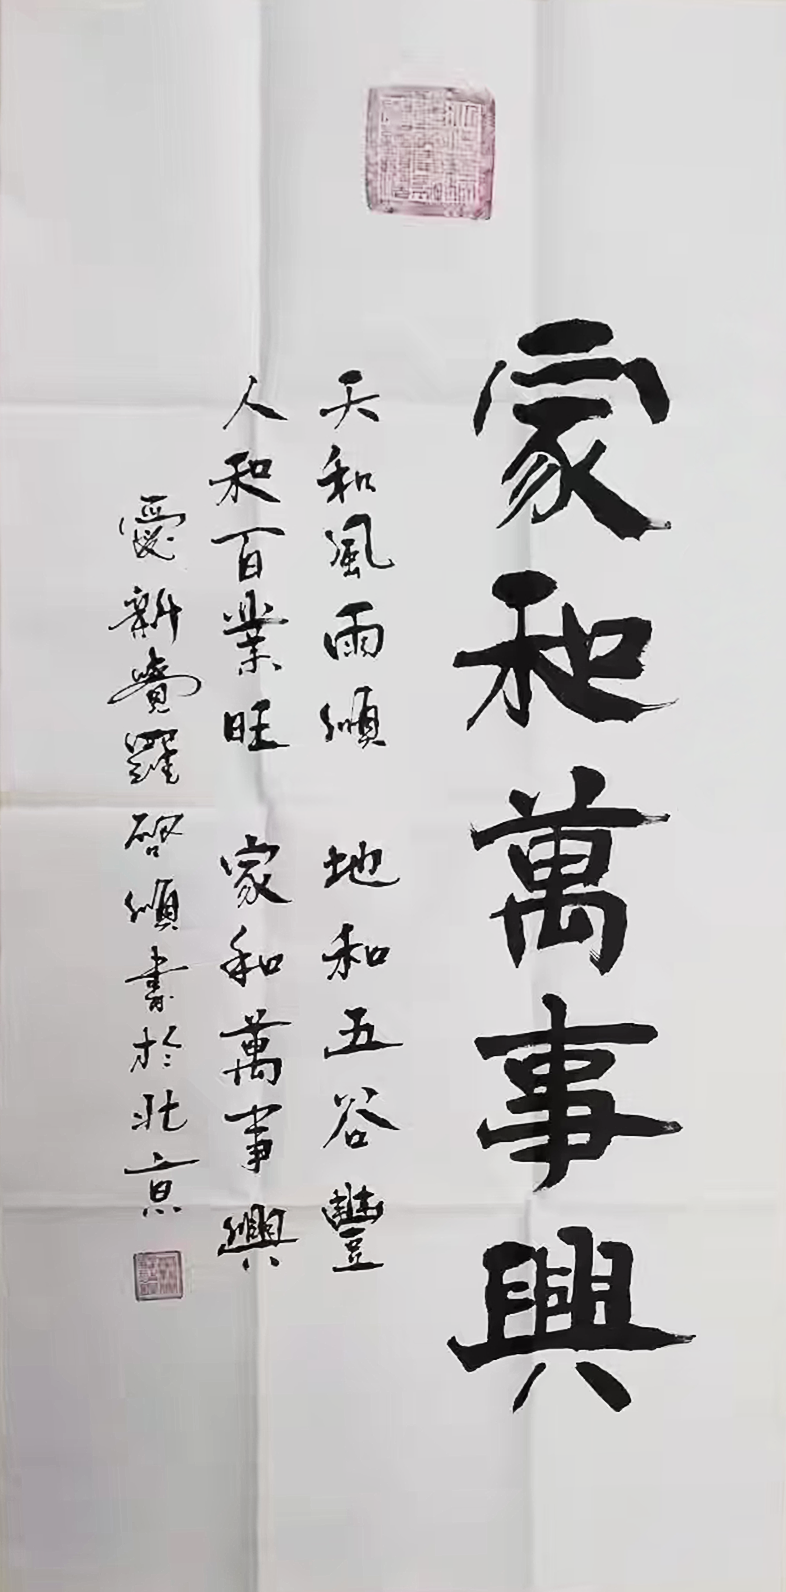 家和萬事興
天和風雨順 地和五谷豐
人和百業旺 家和萬事興
愛新覺羅啓順書於北京